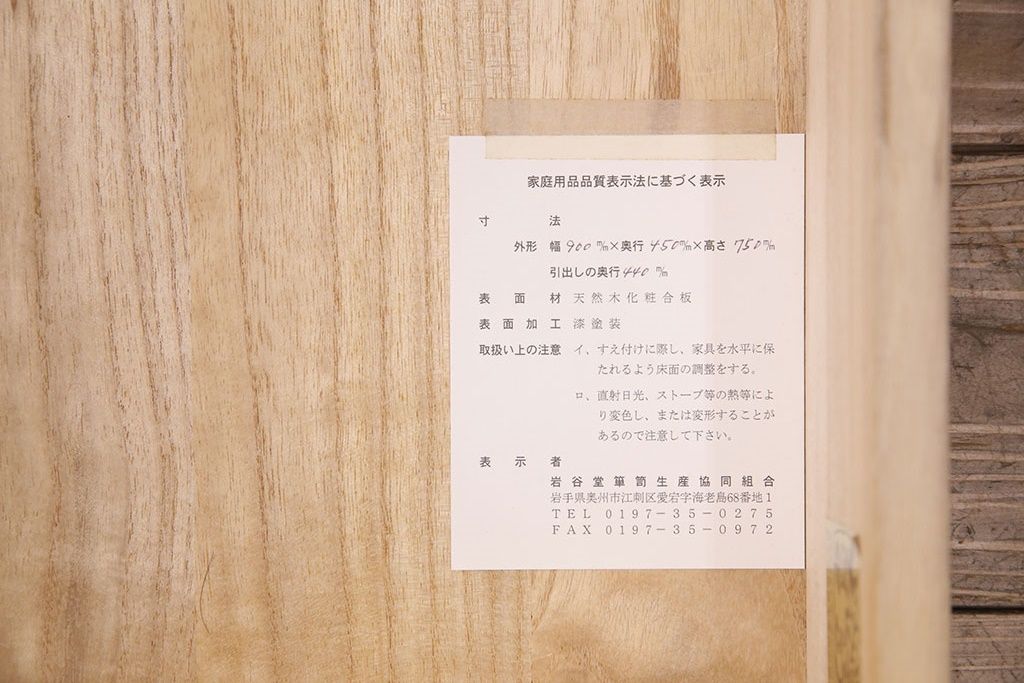 家庭用品品質表示法に基づく表示
寸法
外形 幅 900 ㎜×奥行 450㎜×高さ 750㎜
引出しの奥行 440 ㎜
表面材 天然木化粧合板
表面加工 漆塗装
取扱い上の注意 イ、すえ付けに際し、家具を水平に保
たれるよう床面の調整をする。
ロ、直射日光、ストーブ等の熱等によ
り変色し、または変形することが
あるので注意して下さい。
表示者
岩谷堂箪笥生産協同組合
岩手県奥州市江刺区愛宕字海老島68番地1
TEL 0197-35-0275
FAX 0197-35-0972